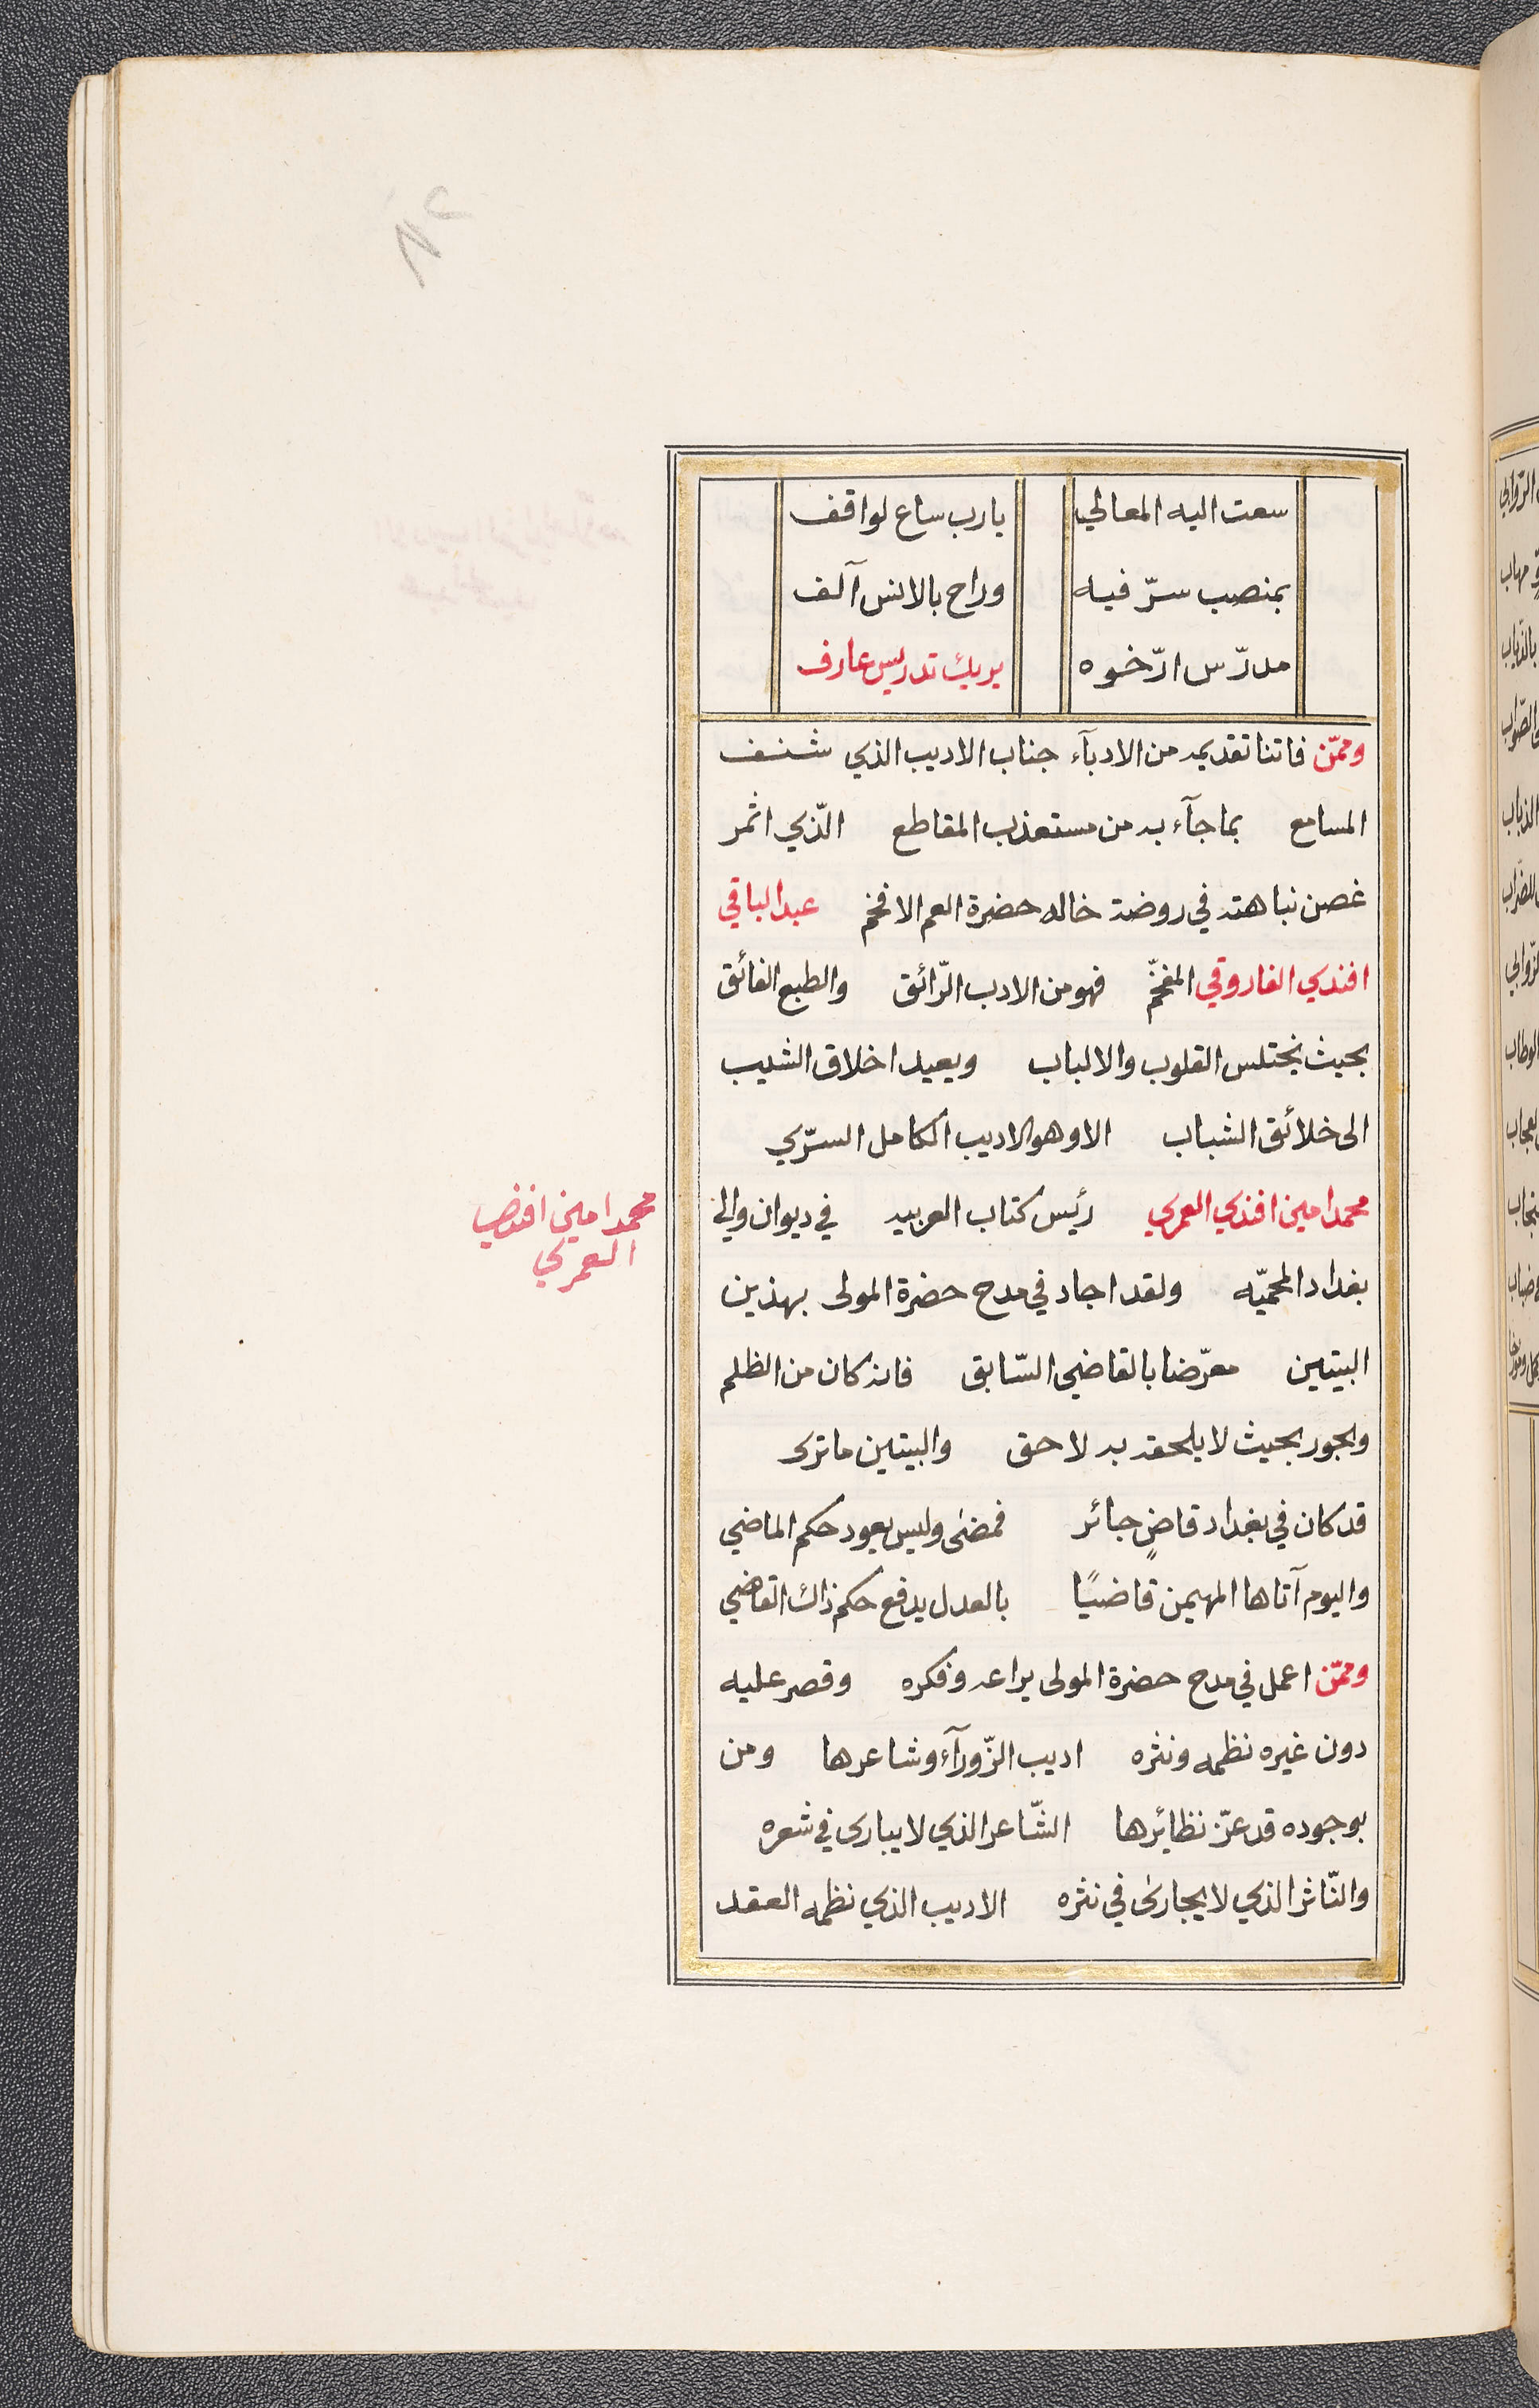 سعت اليه المعالي يارب ساع لواقف
بمنصب سرّ فيه وراح بالانس آلف
مدرّس ارّخوه يريك تدريس عارف
وممّن فاتنا تقديمه من الادبآء جناب الاديب الذي شنف
المسامع بما جآء به من مستعذب المقاطع الّذي اثمر
غصن نباهته في روضة خاله حضرة العم الافخم عبد الباقي
افندي الفاروقي المفخّم فهو من الادب الرّائق والطبع الفائق
بحيث يختلس القلوب والالباب ويعيد اخلاق الشيب
الى خلائق الشباب الا وهو الاديب الكامل السرّي
محمد امين افندي العمري رئيس كتاب العربيه في ديوان والي
محمد امين افندي
العمري
بغداد المحميّه ولقد اجاد في مدح حضرة المولى بهذين
البيتين معرّضا بالقاضي السّابق فانه كان من الظلم
والجور بحيث لا يلحقه به لاحق والبيتين ما ترى
قد كان في بغداد قاضٍ جائر فمضى وليس يعود حكم الماضي
واليوم آتاها المهيمن قاضيًا بالعدل يدفع حكم ذاك القاضي
وممّن اعمل في مدح حضرة المولى يراعه وفكره وقصر عليه
دون غيره نظمه ونثره اديب الزّورآء وشاعرها ومن
بوجوده قد عزّ نظائرها الشّاعر الذي لا يبارى في شعره
والنّاثر الذي لا يجارى في نثره الاديب الذي نظمه العقد